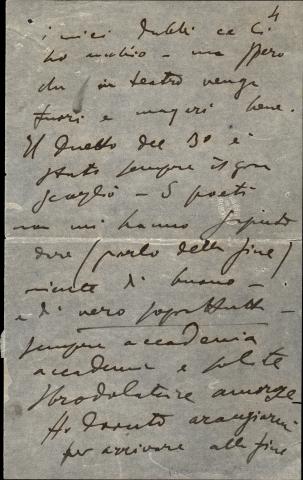 4
i miei dubbi ce li
ho anch'io - ma spero
che in teatro venga
fuori e magari bene.
Il Duetto del 3º è
stato sempre il gran
scoglio - 5 poeti
non mi hanno saputo
dare (parlo della fine)
niente di buono -
e di vero soprattutto -
sempre accademia
accademia e solite
sbrodolature amorose
Ho dovuto arrangiarmi
per arrivare alla fine